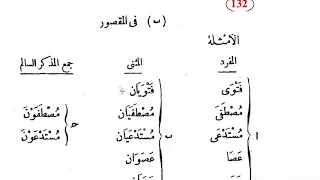 (132)
(ب) فى المقصور
الأمثلة
المفرد المثنى جمع المذكر السالم
فَتْوَى فَتْوَيَان
مُصْطَفَى مُصْطَفَيَان مُصْطَفَوْنَ
ا مُسْتَدْعَى ب مُسْتَدْعَيان ج مُسْتَدْعَوْنَ
عَصَا عَصَوَان